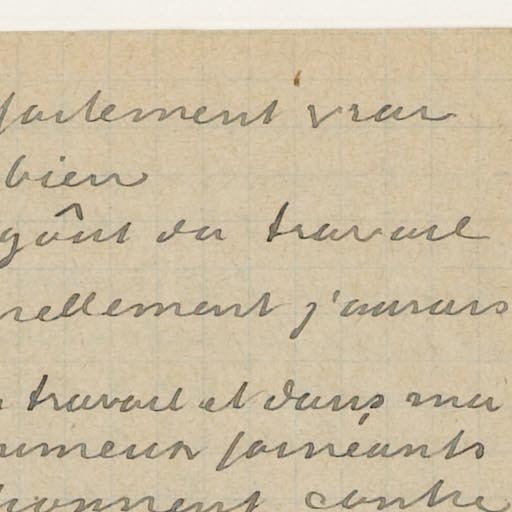 faitement vrai
bien
goût du travail
rellement j'aurais
travail et dans ma
fainéants
contre